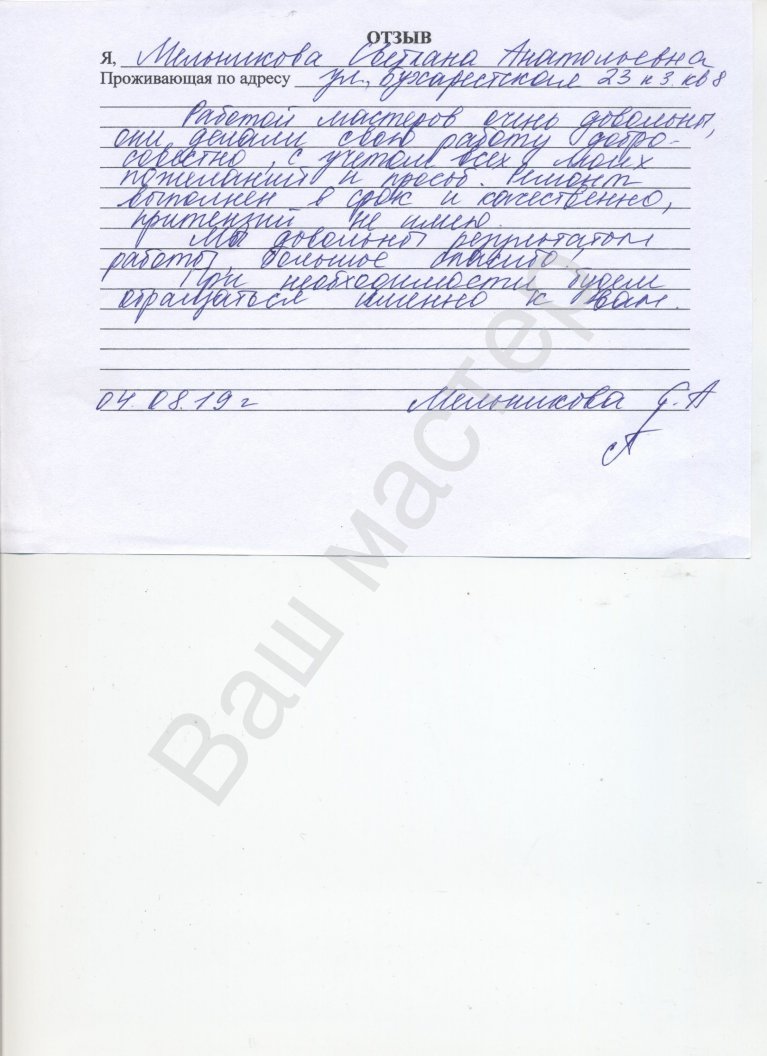 ОТЗЫВ
Я, Мельникова Светлана Анатольевна
Проживающая по адресу ул. Бухарестская 23 к 3. кв 8
Работой мастеров очень довольны,
они делали свою работу добро-
совестно, с учетом всех моих
пожеланий и просьб. Ремонт
выполнен в срок и качественно,
притензий не имею.
Мы довольны результатом
работы, большое спасибо!
При необходимости будем
обращаться именно к вам.
04.08.19 г Мельникова С.А
Ваш мастер